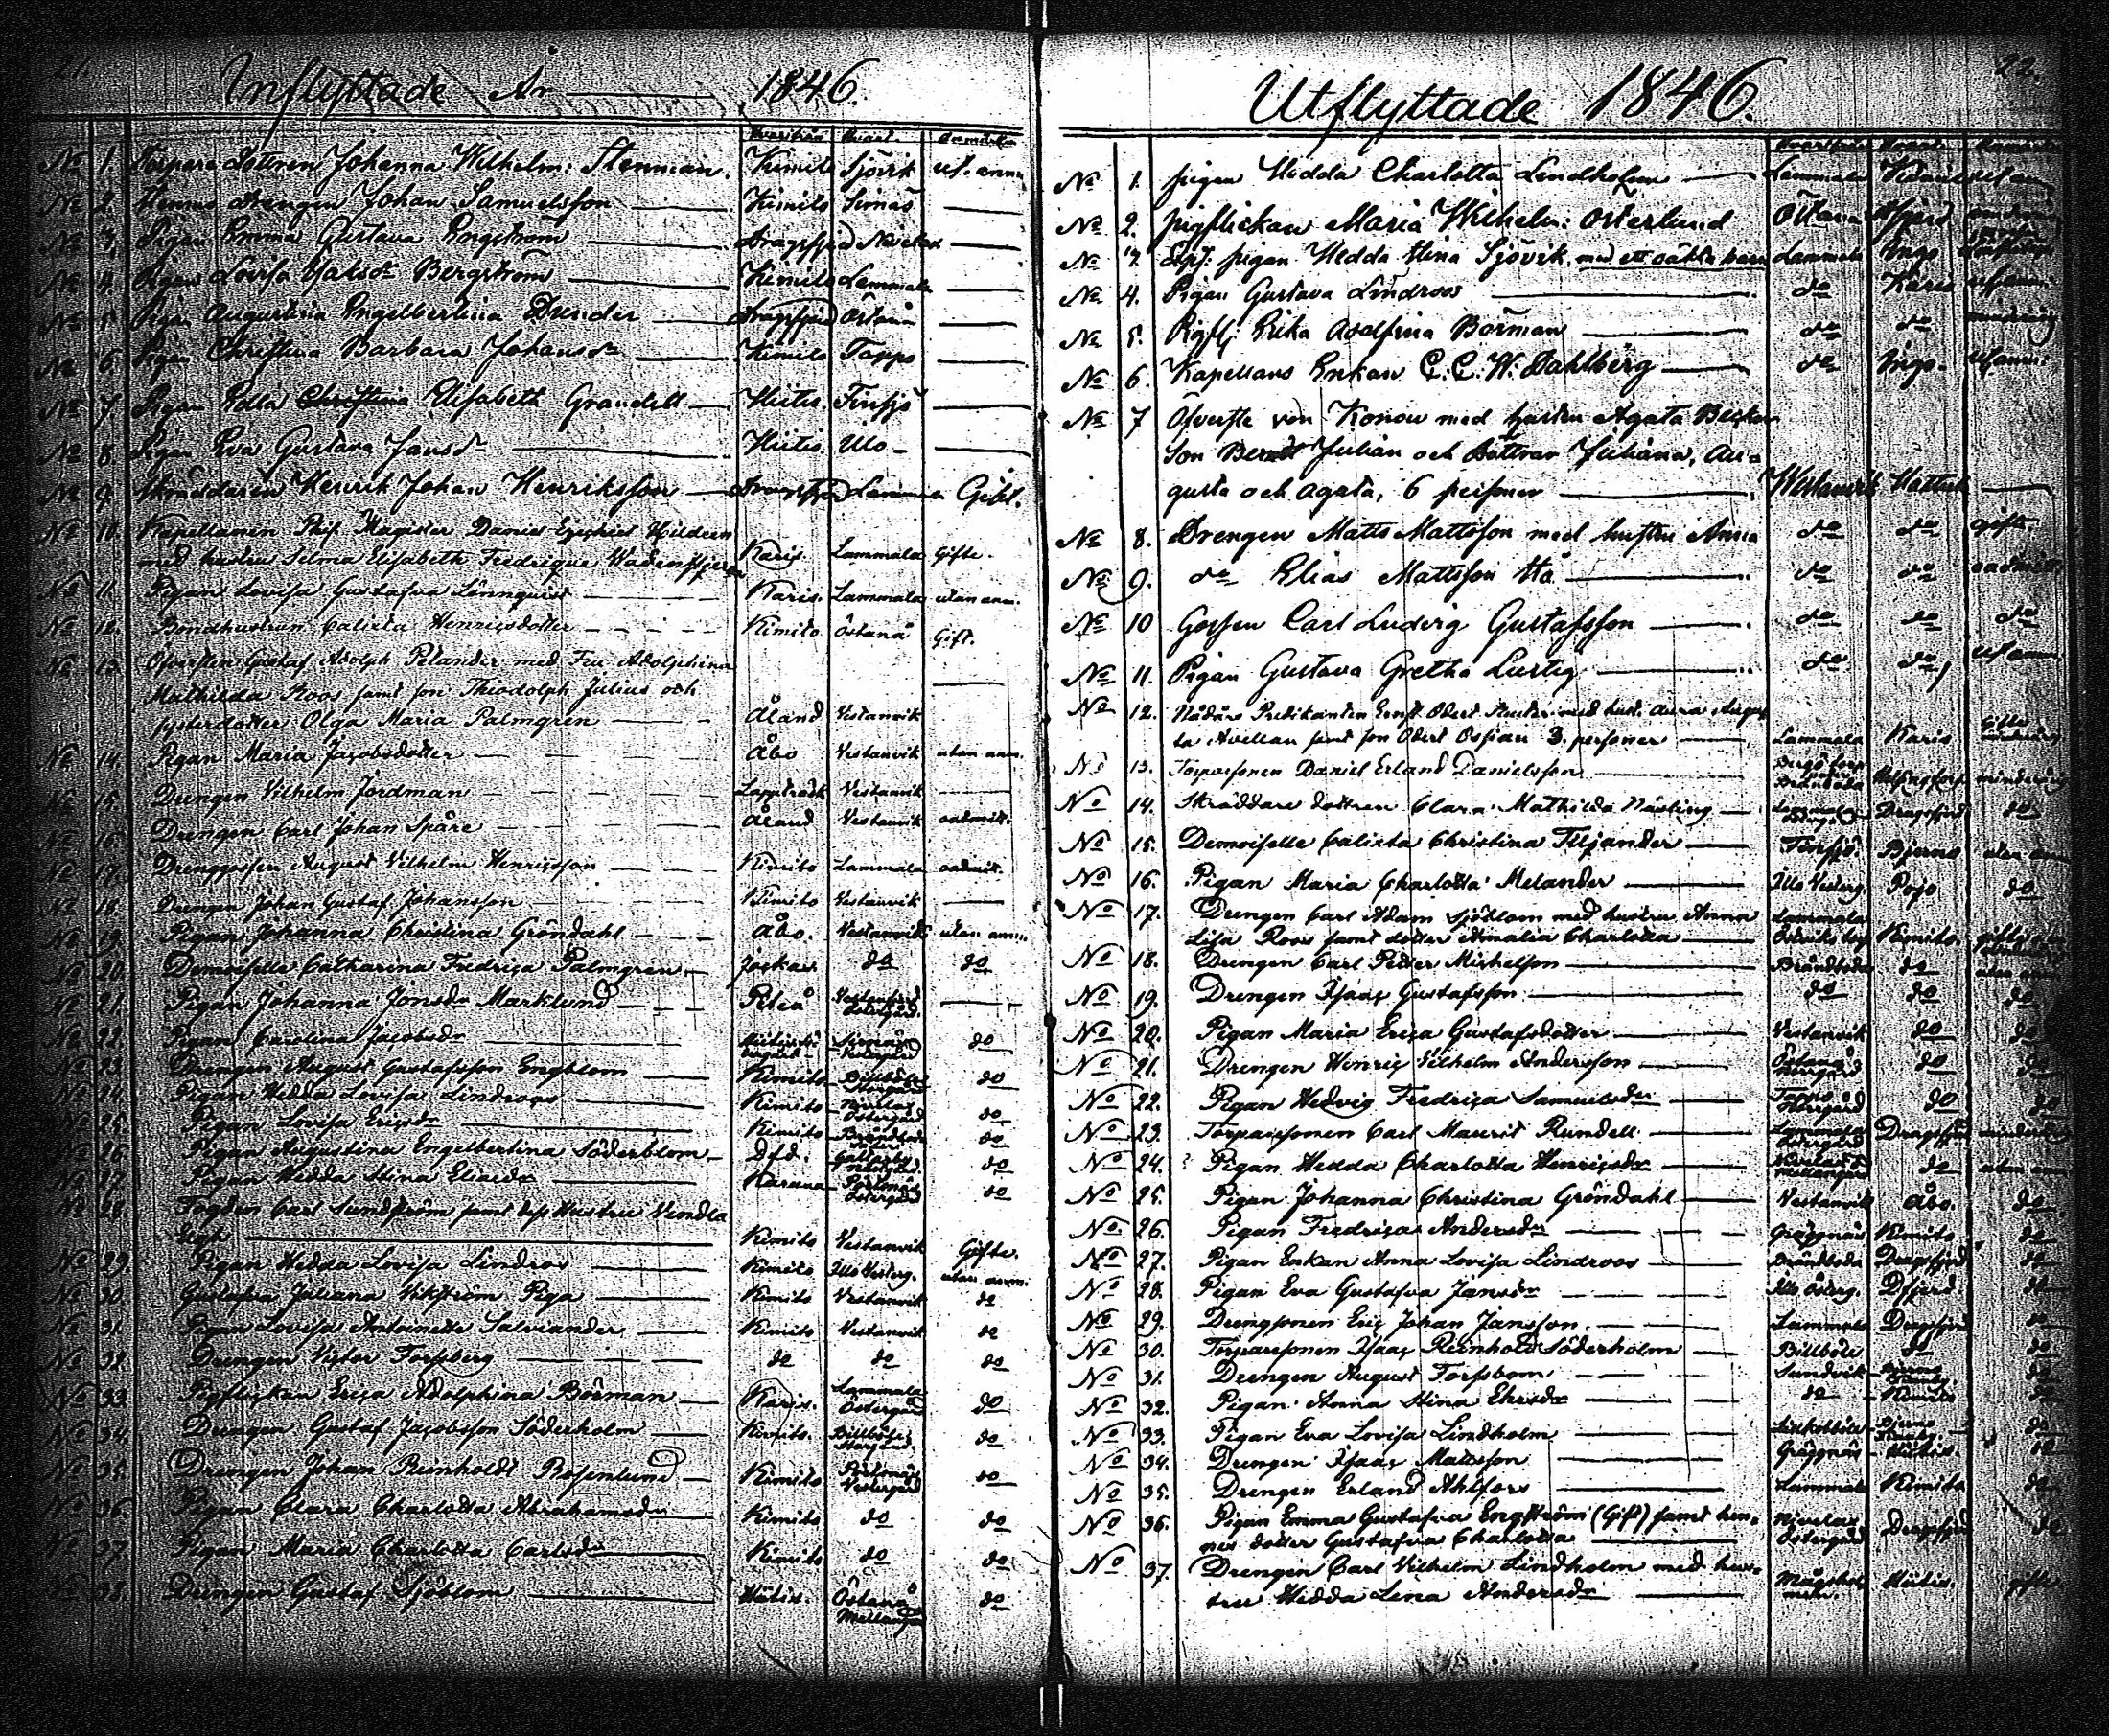 21.
Inflyttade År 1846.
Hvarifrån Hvart Anmärkn
No 1. Torpare dottren Johanna Wilhelm: Stenman. Kimito Sjövik ut. anm
No 2. Hennes drengen Johan Samuelsson Kimito Sirnäs
No 3. Pigan Emma Gustava Engström Dragsfjerd Nivelax
No 4. Pigan Lovisa Jakobsdr Bergström Kimito Lammala
No 5. Pigan Augustina Engelbertina Dunder Dragsfjerd Östanå
No 6. Pigan Christina Barbara Johansdr Kimito Tappo
No 7. Pigan Edla Christina Elisabeth Grandell Hiitis. Finsjö
No 8. Pigan Eva Gustava Jansdr Hiitis Illo
No 9. Skräddaren Henrik Johan Henriksson Dragsfjerd Lammala Gift.
No 10. Kapellanen Phil. Magister Daniel Ezechiel Hildeen
med hustru Selma Elisabeth Fredrique Wadenstjerna Karis. Lammala Gifte.
No 11. Pigan Lovisa Gustafva Lönnquist Karis. Lammala utan anm.
No 12. Bondhustrun Calixta Henricsdotter Kimito Östanå Gift.
No 13. Öfversten Gustaf Adolph Petander med Fru Adolphina
Mathilda Roos samt son Thiodolph Julius och
systerdotter Olga Maria Palmgren Åland Vestanvik
No 14. Pigan Maria Jacobsdotter Åbo Vestanvik utan anm.
No 15. Drengen Vilhelm Jordman Lappträsk Vestanvik
No 16. Drengen Carl Johan Spåre Åland Vestanvik oadmitt.
No 17. Drenggossen August Vilhelm Henricsson Kimito Lammala oadmitt.
No 18. Drengen Johan Gustaf Johansson Kimito Vestanvik
No 19. Pigan Johanna Christina Gröndahl Åbo. Vestanvik utan anm.
No 20. Demoiselle Catharina Fredrica Palmgren Jockas do do
No 21. Pigan Johanna Jonsdr Marklund Piteå
No 22. Pigan Carolina Jacobsdr do
No 23. Drengen August Gustafsson Engblom Kimito do
No 24. Pigan Hedda Lovisa Lindroos Kimito do
No 25. Pigan Lovisa Ericsdr Kimito Brändboda do
No 26. Pigan Augustina Engelbertina Söderblom Dfd. do
No 27. Pigan Hedda Stina Eliaedr Karuna Östergård do
No 28. Fogden Carl Sundström samt dess Hustru Vendla
Kimito Vestanvik Gifte.
No 29. Pigan Hedda Lovisa Lindroos Kimito Illo Vesterg. utan anm.
No 30. Gustafva Juliana Vikström Piga Kimito Vestanvik do
No 31. Pigan Lovisa Antoinette Salviander Kimito Vestanvik do
No 32. Drengen Victor Forssberg do do do
No 33. Pigflickan Erica Adolphina Börman Karis. Lammala Östergård do
No 34. Drengen Gustaf Jacobsson Söderholm Kimito. Billböle do
No 35. Drengen Johan Reinholdt Rosenlund Kimito Vestergård do
No 36. Pigan Clara Charlotta Abrahamsdr Kimito do do
No 37. Pigan Maria Charlotta Carlsdr Kimito do do
No 38. Drengen Gustaf Sjöblom Hiitis. Östanå Mellangård do
22.
Utflyttade 1846.
No 1. pigan Hedda Charlotta Lindholm Lammala Kimito ut an
No 2. pigflickan Maria Wilhelm: Österlund Östanå
No 3. pigan Hedda Stina Sjövik med ett oäkta barn Lammala Ingo
No 4. Pigan Gustava Lindroos do Karis
No 5. Pigfl: Erika Adolfina Börman do do minderårig
No 6. Kapellans Enkan C. C. W. Dahlberg do Ingo. ut anm:
No 7 Öfverste von Konow med hustru Agata Becker
Son Berndt Julian och döttrar Juliana, Au-
gusta och Agata, 6 personer Westanvik
No 8. Drengen Matts Mattsson med hustru Anna do do gifte
No 9. do Elias Mattsson do do oadmitt.
No 10 Gossen Carl Ludvig Gustafsson do do do
No 11. Pigan Gustava Gretha Lustig do do ut anm.
No 12. Nådårs Predikanten Ernst Odert Reuter med hust. Aura Augus-
ta Avellan samt son Odert Ossian 3. personer Lammala Karis gifte
No 13. Torparsonen Daniel Erland Danielsson Brändboda Helsingfors minderårig
No 14. Skräddare dottren Clara Mathilda Näsling Lammala Dragsfjerd do
No 15. Demoiselle Calixta Christina Tiljander Finsjö Bjerno utan anm
No 16. Pigan Maria Charlotta Melander Illo Vesterg. Pojo do
No 17. Drengen Carl Adam Sjöblom med hustru Anna
Lisa Roos samt dotter Amalia Charlotta Lammala Kimito.
No 18. Drengen Carl Petter Michelsson Brändboda do utan anm
No 19. Drengen Isaac Gustafsson do do do
No 20. Pigan Maria Erica Gustafsdotter Vestanvik do do
No 21. Drengen Henric Vilhelm Andersson Östanå do do
No 22. Pigan Hedvig Fredrica Samuelsdr Tappo do do
No 23. Torparesonen Carl Maurit Rundell Lammala Östergård Dragsfjerd minderårig
No 24. Pigan Hedda Charlotta Henricsdr Nivelax Mellangård do utan anm
No 25. Pigan Johanna Christina Gröndahl Vestanvik Åbo. do
No 26. Pigan Fredrica Andersdr Gräggnäs Kimito do
No 27. Pigan Enkan Anna Lovisa Lindroos Brändboda Dragsfjerd do
No 28. Pigan Eva Gustafva Jansdr Illo Österg. Dfjerd do
No 29. Drengsonen Eric Johan Jansson Lammala Dragsfjerd do
No 30. Torparesonen Isaac Reinhold Söderholm Billböle do do
No 31. Drengen August Forssbom Sundvik do
No 32. Pigan Anna Stina Ehrsdr do Kimito do
No 33. Pigan Eva Lovisa Lindholm do
No 34. Drengen Isaac Mattsson Gräggnäs Hiitis do
No 35. Drengen Erland Ahlfors Lammala Kimito do
No 36. Pigan Emma Gustafva Engström (Gift) samt hen-
nes dotter Gustafva Charlotta Nivelax Östergård Dragsfjerd do
No 37. Drengen Carl Vilhelm Lindholm med hus-
tru Hedda Lena Andersdr Hiitis. gifte